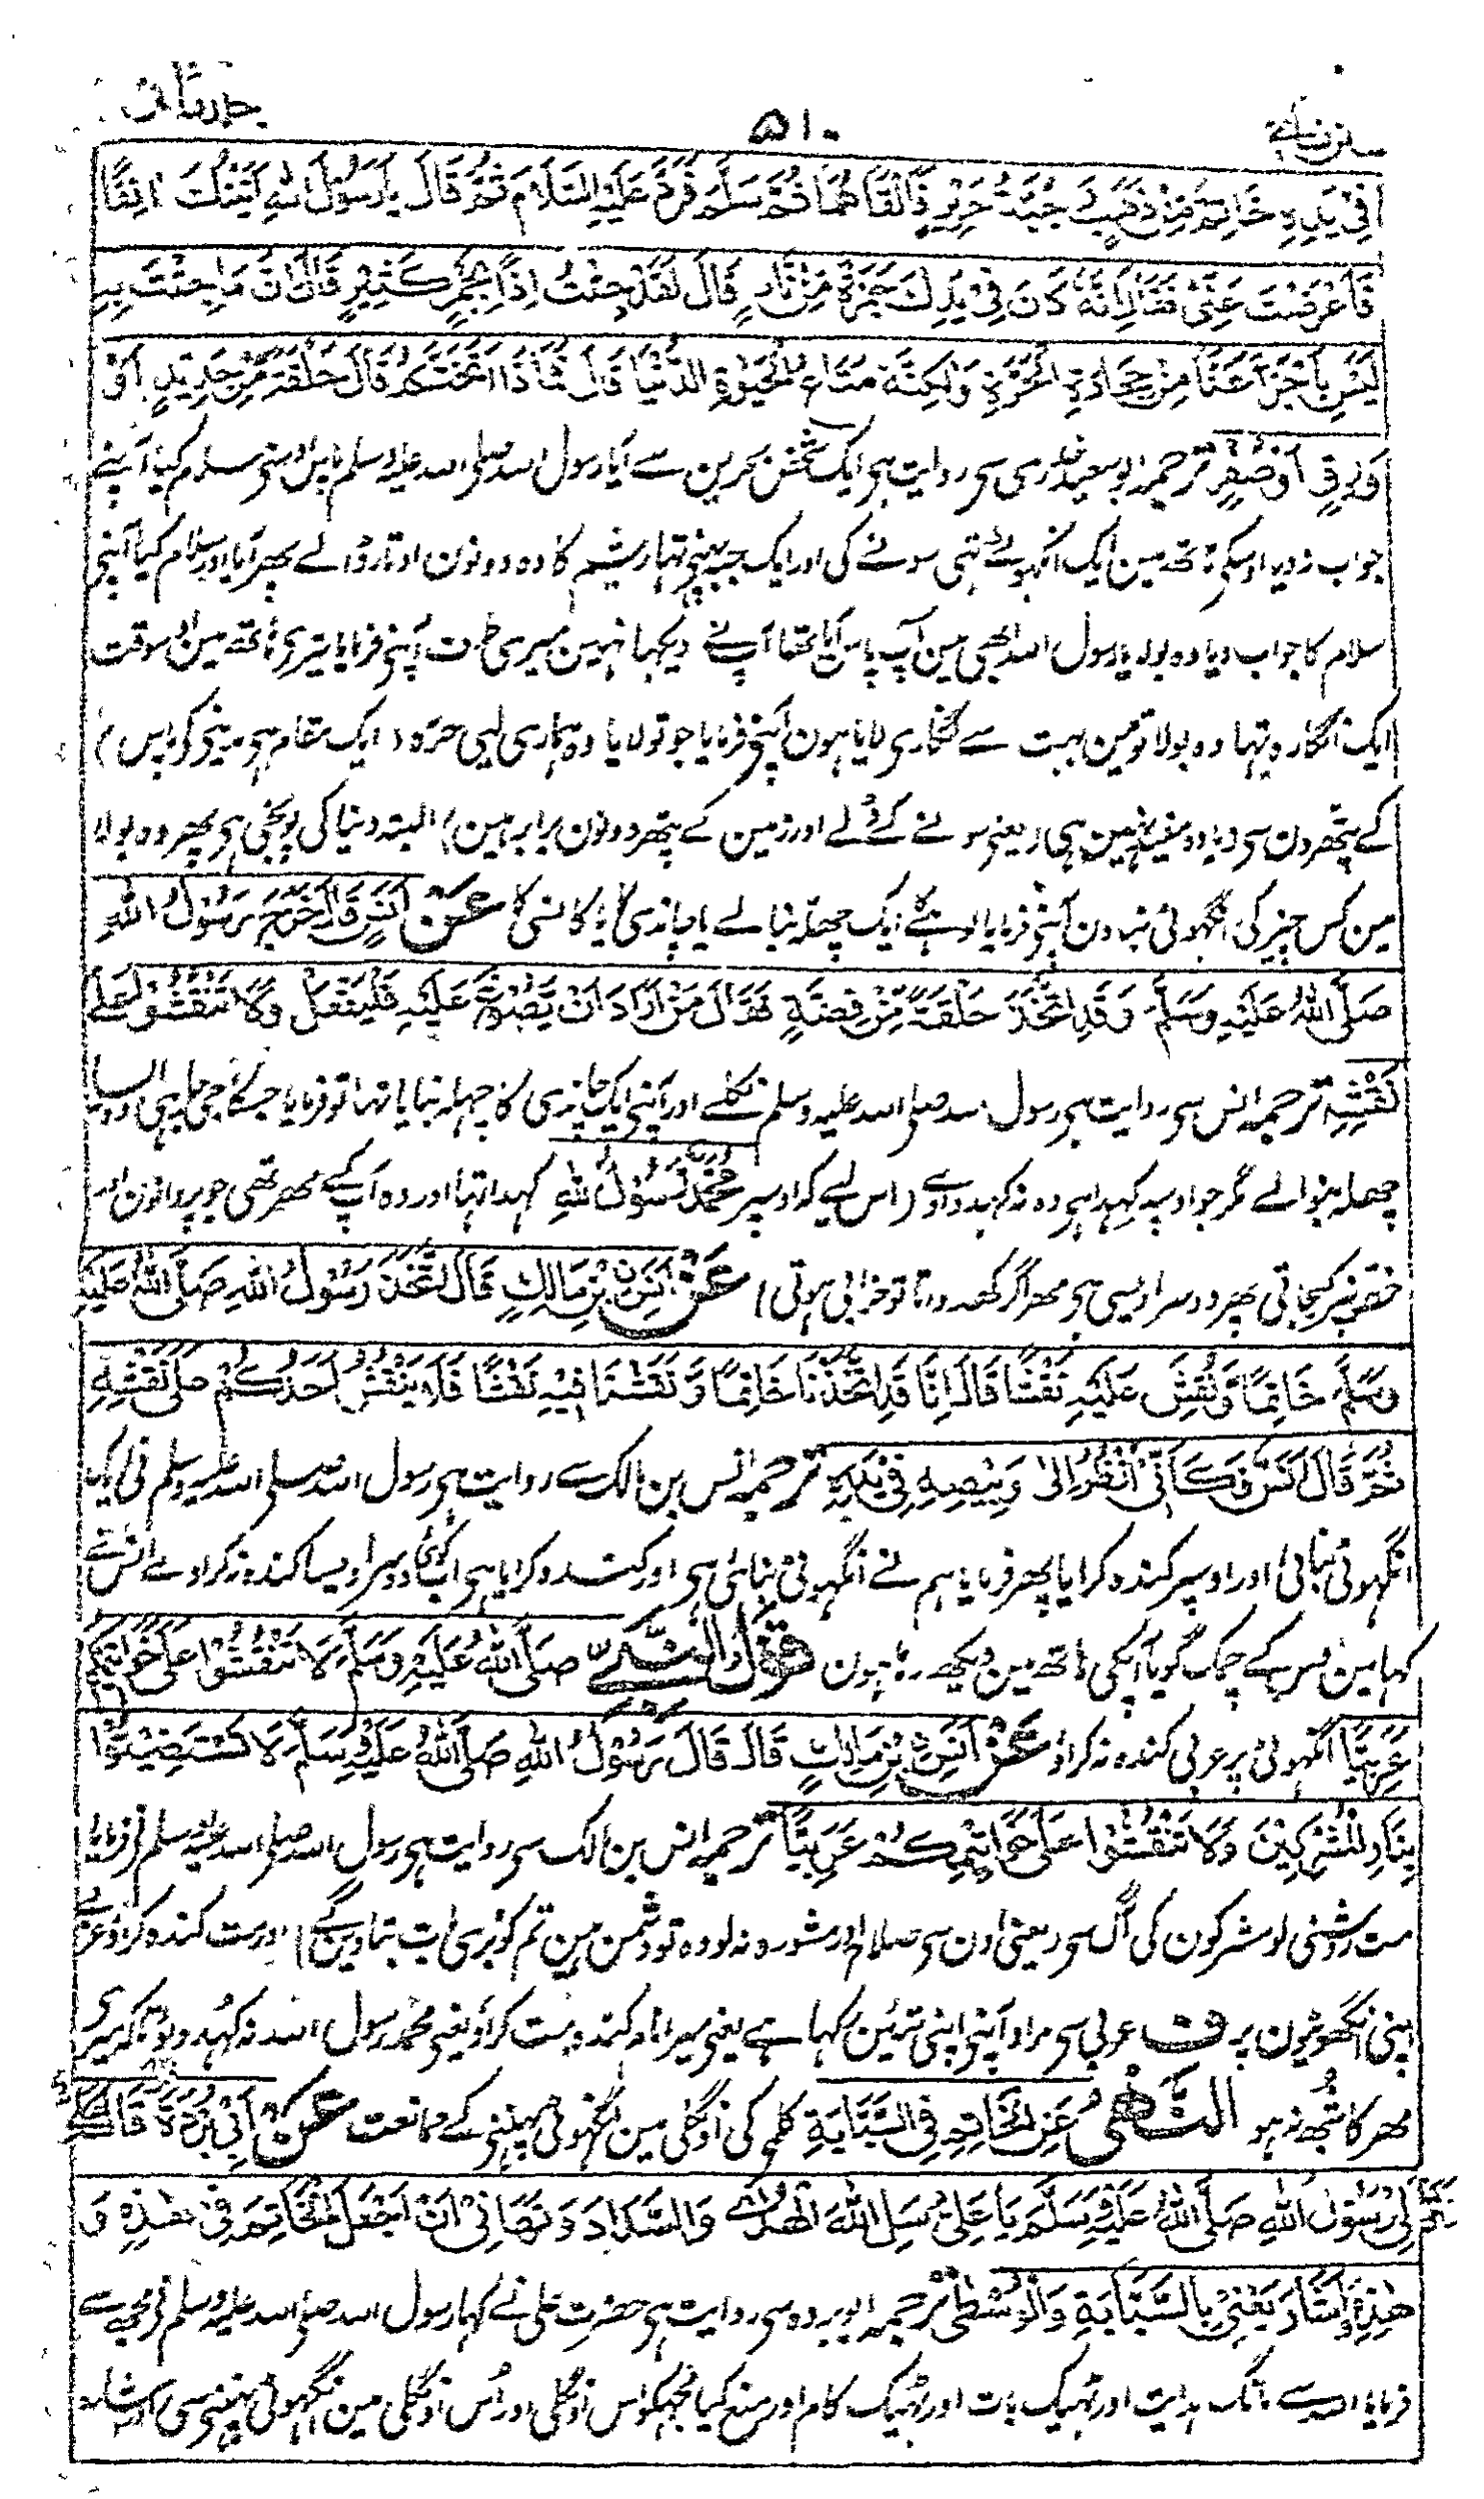 جلد ثانی
۵۱۰
سنن نسائی
فِيْ يَدِهِ خَاتَمٌ مِنْ ذَهَبٍ وَجُبَّةُ حَرِيْرٍ فَأَلْقَاهُمَا ثُمَّ سَلَّمَ فَرَدَّ عَلَيْهِ السَّلَامَ ثُمَّ قَالَ يَا رَسُوْلَ اللهِ أَتَيْتُكَ اٰنِفًا
فَأَعْرَضْتَ عَنِّيْ فَقَالَ إِنَّهٗ كَانَ فِيْ يَدِكَ جَمْرَةٌ مِنْ نَارٍ قَالَ لَقَدْ جِئْتُ إِذًا بِجَمْرٍ كَثِيْرٍ قَالَ إِنَّ مَا جِئْتَ بِهِ
لَيْسَ بِأَجْزَأَ عَنَّا مِنْ حِجَارَةِ الْحَرَّةِ وَلٰكِنَّهٗ مَتَاعُ الْحَيٰوةِ الدُّنْيَا قَالَ فَمَاذَا أَتَخَتَّمُ قَالَ حَلْقَةً مِنْ حَدِيْدٍ أَوْ
وَرِقٍ أَوْ صُفْرٍ ترجمہ ابو سعید خدری سی روایت ہی ایک شخص بحرین سے آیا رسول اللہ صلی اللہ علیہ وسلم پاس اوسنی سلام کیا آپنے
جواب ندیا اوسکی ہاتھ مین ایک انگہوٹی تہی سونے کی اور ایک جبہ پہنی تہا ریشم کا وہ دونون اوتار ڈالے پھر آیا اور سلام کیا آپنی
سلام کا جواب دیا وہ بولا یا رسول اللہ ابھی مین آپ پاس آیا تھا آپنے دیکہا نہین میری طرف آپنی فرمایا تیری ہاتھ مین اوسوقت
ایک انگارہ تہا وہ بولا تو مین بہت سے انگاری لایا ہون آپنی فرمایا جو تو لایا وہ ہماری لیی حرہ (ایک مقام ہی مدینی کی پاس)
کے پتھرون سی زیادہ مفید نہین ہی (یعنی سونے کے ڈلے اور زمین کے پتھر دونون برابر ہین) البتہ دنیا کی پونجی ہی پھر وہ بولا
مین کس چیز کی انگہوٹی بناون آپنی فرمایا لوہے کا ایک چھلا بنا لے یا چاندی کا یا کانسی کا عَنْ أَنَسٍ قَالَ خَرَجَ رَسُوْلُ اللهِ
صَلَّى اللهُ عَلَيْهِ وَسَلَّمَ وَقَدِ اتَّخَذَ حَلْقَةً مِنْ فِضَّةٍ فَقَالَ مَنْ أَرَادَ أَنْ يَصُوْغَ عَلَيْهِ فَلْيَفْعَلْ وَلَا تَنْقُشُوْا عَلٰى
نَقْشِهِ ترجمہ انس سی روایت ہی رسول اللہ صلی اللہ علیہ وسلم نکلے اور آپنی ایک چاندی کا چہلا بنایا تہا تو فرمایا جسکا جی چاہی وہ ایسا
چھلا بنوالے مگر جو اوسپہ کہدا ہی وہ نہ کہدواوے (اس لیے کہ اوسپر مُحَمَّدٌ رَسُوْلُ اللهِ کہدا تہا اور وہ آپ کے مھر تھی جو پروانون اور
خطون پر کیجاتی پھر دوسرا ویسی ہی مھر اگر کھدواتا تو خرابی ہوتی) عَنْ أَنَسِ بْنِ مَالِكٍ قَالَ اتَّخَذَ رَسُوْلُ اللهِ صَلَّى اللهُ عَلَيْهِ
وَسَلَّمَ خَاتَمًا وَنَقَشَ عَلَيْهِ نَقْشًا قَالَ إِنَّا قَدِ اتَّخَذْنَا خَاتَمًا وَنَقَشْنَا فِيْهِ نَقْشًا فَلَا يَنْقُشْ أَحَدُكُمْ عَلٰى نَقْشِهِ
ثُمَّ قَالَ أَنَسٌ فَكَأَنِّيْ أَنْظُرُ إِلٰى وَبِيْصِهِ فِيْ يَدِهِ ترجمہ انس بن مالک سے روایت ہی رسول اللہ صلی اللہ علیہ وسلم نی ایک
انگہوٹی بنائی اور اوسپر کندہ کرایا پھر فرمایا ہم نے انگہوٹی بنائی ہی اور کندہ کرایا ہی اب کوئی دوسرا ویسا کندہ نہ کراوے انس نے
کہا مین اس کے چمک گویا آپکی ہاتھ مین دیکھ رہا ہون قَوْلُ النَّبِيِّ صَلَّى اللهُ عَلَيْهِ وَسَلَّمَ لَا تَنْقُشُوْا عَلٰى خَوَاتِيْمِكُمْ
عَرَبِيًّا انگہوٹی پر عربی کندہ نہ کراؤ عَنْ أَنَسِ بْنِ مَالِكٍ قَالَ قَالَ رَسُوْلُ اللهِ صَلَّى اللهُ عَلَيْهِ وَسَلَّمَ لَا تَسْتَضِيْئُوْا
بِنَارِ الْمُشْرِكِيْنَ وَلَا تَنْقُشُوْا عَلٰى خَوَاتِيْمِكُمْ عَرَبِيًّا ترجمہ انس بن مالک سی روایت ہی رسول اللہ صلی اللہ علیہ وسلم نی فرمایا
مت روشنی لو مشرکون کی آگ سی (یعنی اون سی صلاح اور مشورہ نہ لو وہ تو دشمن ہین تم کو بری بات بتاوینگے) اور مت کندہ کراؤ عربی
اپنی انگھوٹیون پر ف عربی سی مراد آپنی اپنی تئین کہا ہے یعنی میرا نام کندہ مت کراؤ یعنی محمد رسول اللہ نہ کہُدواؤ تاکہ میری
مھر کا شبہ نہ ہو النَّهْيُ عَنِ الْخَاتَمِ فِي السَّبَّابَةِ کلمی کی اونگلی مین انگہوٹی پہننی کے ممانعت عَنْ أَبِيْ بُرْدَةَ قَالَ عَلِيٌّ
قَالَ لِيْ رَسُوْلُ اللهِ صَلَّى اللهُ عَلَيْهِ وَسَلَّمَ يَا عَلِيُّ سَلِ اللهَ الْهُدٰى وَالسَّدَادَ وَنَهَانِيْ أَنْ أَجْعَلَ الْخَاتَمَ فِيْ هٰذِهِ وَ
هٰذِهِ وَأَشَارَ يَعْنِيْ بِالسَّبَّابَةِ وَالْوُسْطٰى ترجمہ ابو بردہ سی روایت ہی حضرت علی نے کہا رسول اللہ صلی اللہ علیہ وسلم نی مجھ سے
فرمایا اللہ سے مانگ ہدایت اور ٹہیک بات اور ٹہیک کام اور منع کیا مجہکو اس اونگلی اور اُس اونگلی مین انگہوٹی پہننی سی اور اشارہ